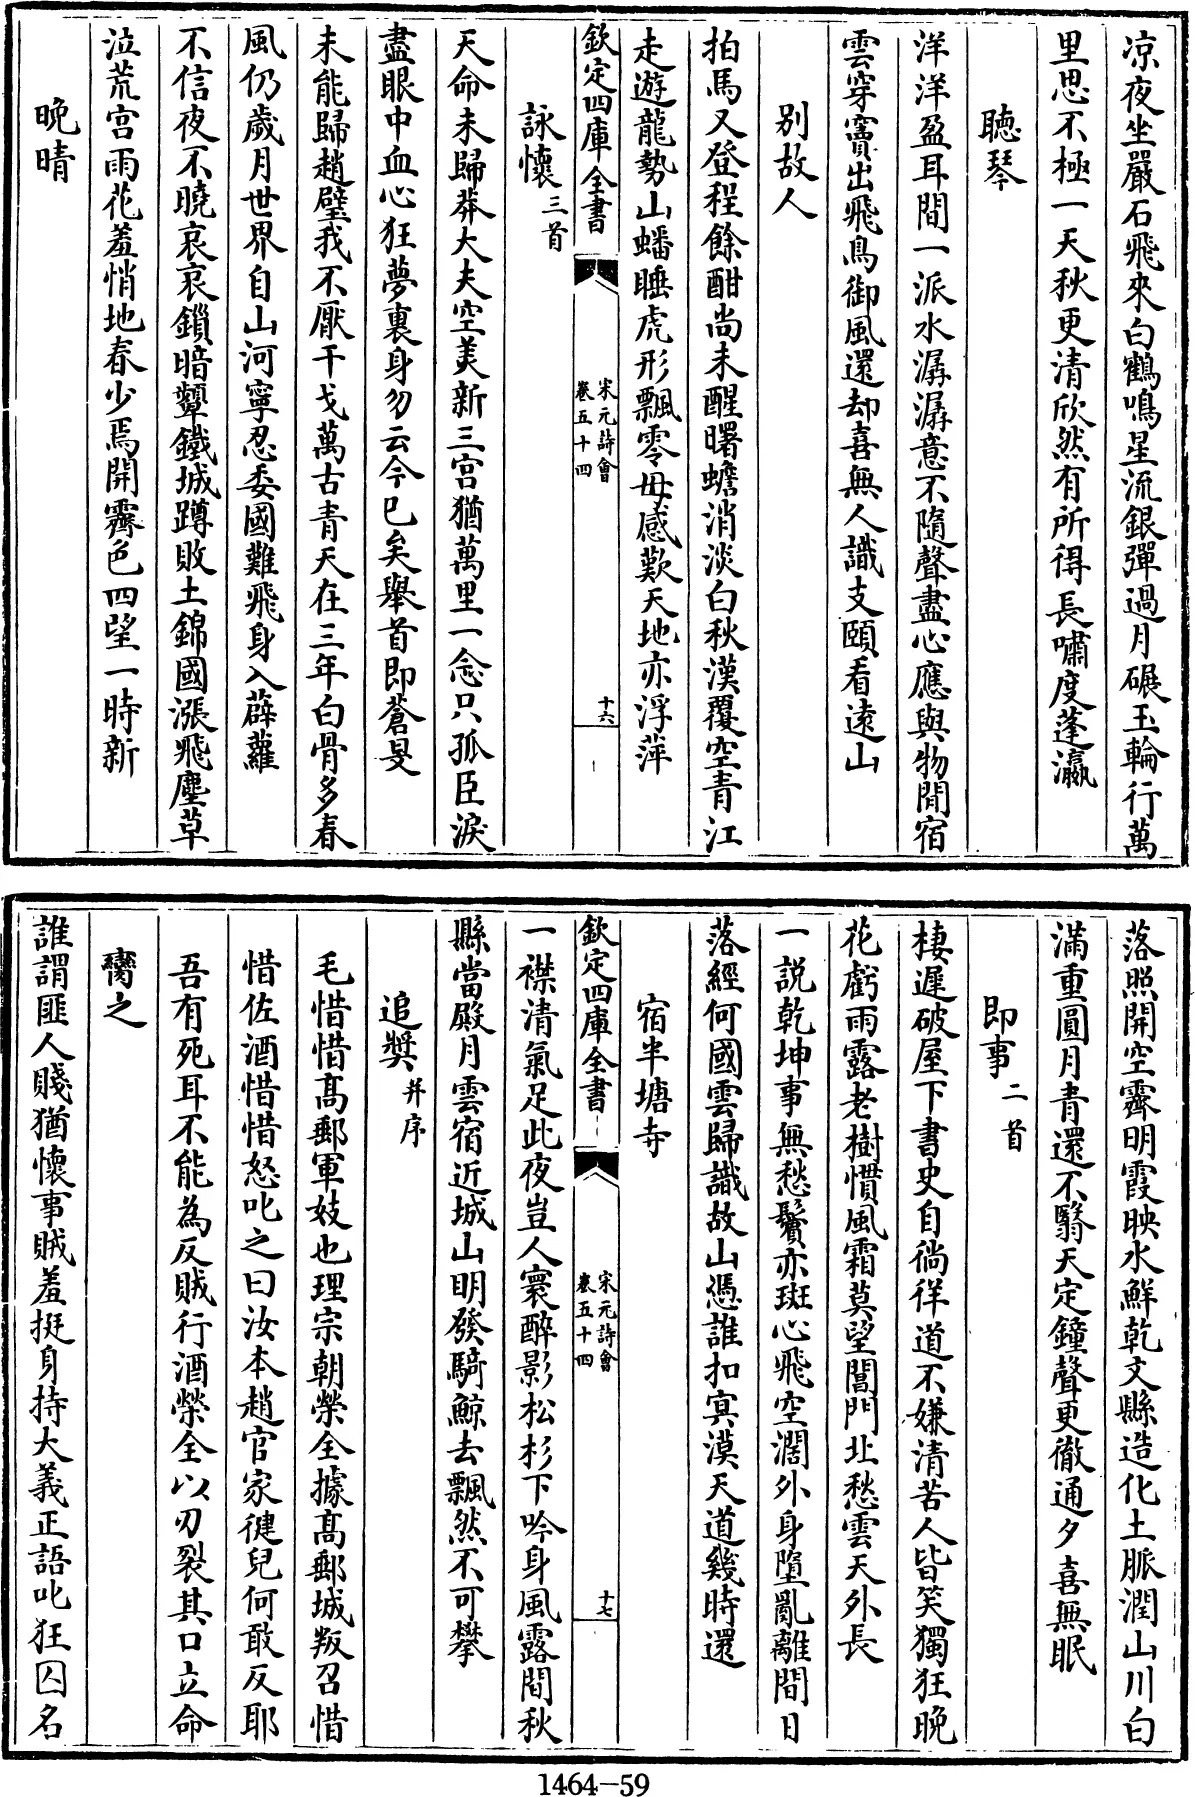 凉夜坐嚴石飛來白鶴鳴星流銀彈過月碾玉輪行萬
里思不極一天秋更清欣然有所得長嘯度蓬瀛
聽琴
洋洋盈耳間一派水潺潺意不隨聲盡心應與物閒宿
雲穿竇出飛鳥御風還却喜無人識支頤看遠山
别故人
拍馬又登程餘酣尚未醒曙蟾消淡白秋漢覆空青江
走遊龍勢山蟠睡虎形飄零毋感歎天地亦浮萍
欽定四庫全書
宋元詩會
卷五十四
十六
詠懷三首
天命未歸莽大夫空美新三宫猶萬里一念只孤臣淚
盡眼中血心狂夢裏身勿云今已矣舉首即蒼旻
未能歸趙璧我不厭干戈萬古青天在三年白骨多春
風仍歲月世界自山河寧忍委國難飛身入薜蘿
不信夜不曉哀哀鎖暗顰鐵城蹲敗土錦國漲飛塵草
泣荒宫雨花羞悄地春少焉開霽色四望一時新
晚晴
落照開空霽明霞映水鮮乾文縣造化土脈潤山川白
滿重圓月青還不翳天定鐘聲更徹通夕喜無眠
即事二首
棲遲破屋下書史自徜徉道不嫌清苦人皆笑獨狂晚
花虧雨露老樹慣風霜莫望閶門北愁雲天外長
一説乾坤事無愁鬢亦斑心飛空濶外身墮亂離間日
落經何國雲歸識故山憑誰扣㝠漠天道幾時還
宿半塘寺
欽定四庫全書
宋元詩會
卷五十四
十七
一襟清氣足此夜豈人寰醉影松杉下吟身風露間秋
縣當殿月雲宿近城山明發騎鯨去飄然不可攀
追奬并序
毛惜惜髙郵軍妓也理宗朝榮全據髙郵城叛召惜
惜佐酒惜惜怒叱之曰汝本趙官家健兒何敢反耶
吾有死耳不能為反賊行酒榮全以刃裂其口立命
臠之
誰謂匪人賤猶懷事賊羞挺身持大義正語叱狂囚名
1464-59